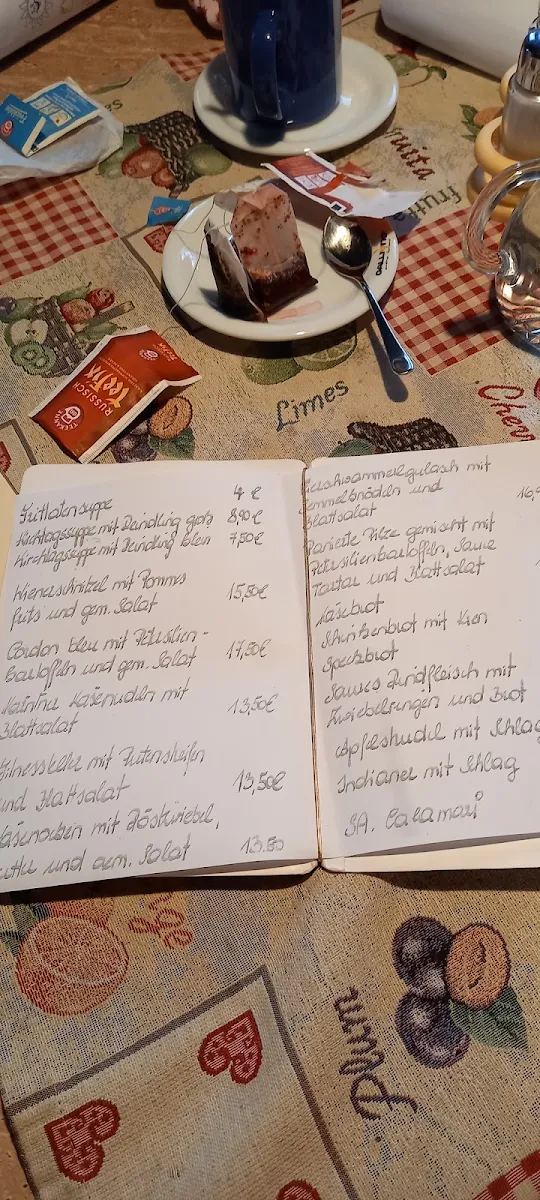 fruita
frutta
DALLI
RUSSISCH
TEEKANNE
Limes
Cherr
Frittatensuppe 4 €
Kirchtagssuppe mit Reindling groß 8,90 €
Kirchtagssuppe mit Reindling klein 7,50 €
Wienerschnitzel mit Pommes
frits und gem. Salat 15,50€
Cordon bleu mit Petersilien-
kartoffeln und gem. Salat 17,50€
Kärntner Kasnudeln mit
Blattsalat 13,50€
Fitnessteller mit Putenstreifen
und Blattsalat 13,50€
Kasnocken mit Röstzwiebel,
und gem. Salat 13.50
mit
Semmelknödeln und
Blattsalat 16,
Panierte Pilze gemischt mit
Petersilienkartoffeln, Sauce
Tartar und Blattsalat
Käsebrot
Schinkenbrot mit Kren
Speckbrot
Saures Rindfleisch mit
Zwiebelringen und Brot
Apfelstrudel mit Schlag
Indianer mit Schlag
SA. Calamari
Plum